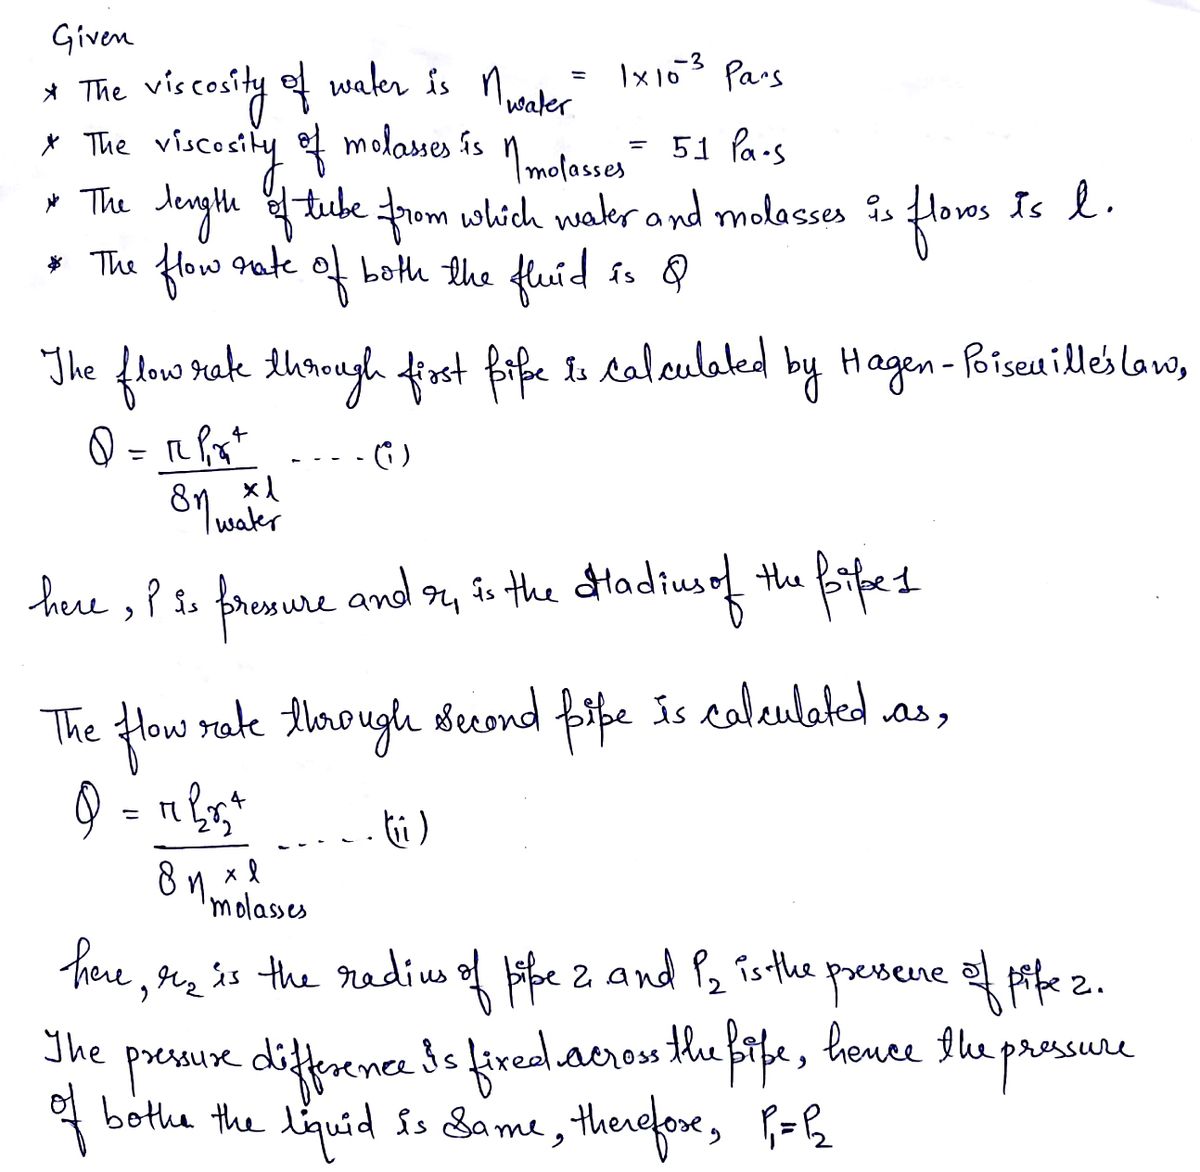 Given
* The viscosity of water is η_water = 1×10⁻³ Pa·s
* The viscosity of molasses is η_molasses = 51 Pa·s
* The length of tube from which water and molasses is flows is l.
* The flow rate of both the fluid is Q
The flow rate through first pipe is calculated by Hagen-Poiseuille's law,
Q = πP₁r₁⁴ / 8η_water × l ----(i)
here, P is pressure and r₁ is the radius of the pipe 1
The flow rate through second pipe is calculated as,
Q = πP₂r₂⁴ / 8η_molasses × l ------(ii)
here, r₂ is the radius of pipe 2 and P₂ is the pressure of pipe 2.
The pressure difference is fixed across the pipe, hence the pressure
of bothe the liquid is same, therefore, P₁=P₂